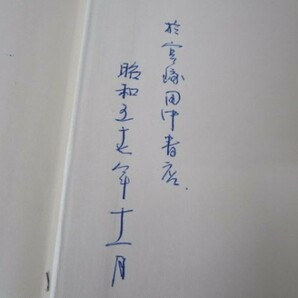 於宮崎田中書店.
昭和五十七年十一月